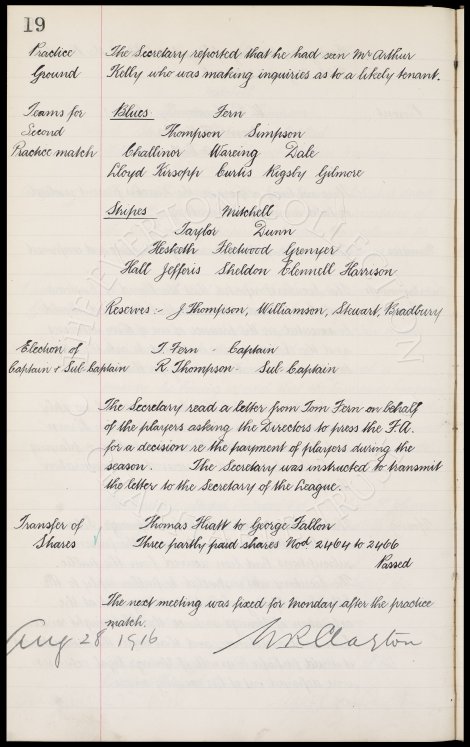 19
Practice The Secretary reported that he had seen Mr Arthur
Ground Kelly who was making inquiries as to a likely tenant.
Teams for Blues Fern
Second Thompson Simpson
Practice match Challinor Wareing Dale
Lloyd Kirsopp Curtis Rigsby Gilmore
Stripes Mitchell
Taylor Dunn
Hesketh Fleetwood Grenyer
Hall Jefferis Sheldon Clennell Harrison
Reserves :- J. Thompson, Williamson, Stewart, Bradbury
Election of T. Fern - Captain
Captain & Sub-Captain R. Thompson - Sub-Captain
The Secretary read a letter from Tom Fern on behalf
of the players asking the Directors to press the F.A.
for a decision re the payment of players during the
season. The Secretary was instructed to transmit
the letter to the Secretary of the League.
Transfer of Thomas Hiatt to George Fallon
Shares Three partly paid shares Nod 2464 to 2466
Passed
The next meeting was fixed for Monday after the practice
match.
Aug 28 1916 W R Clayton